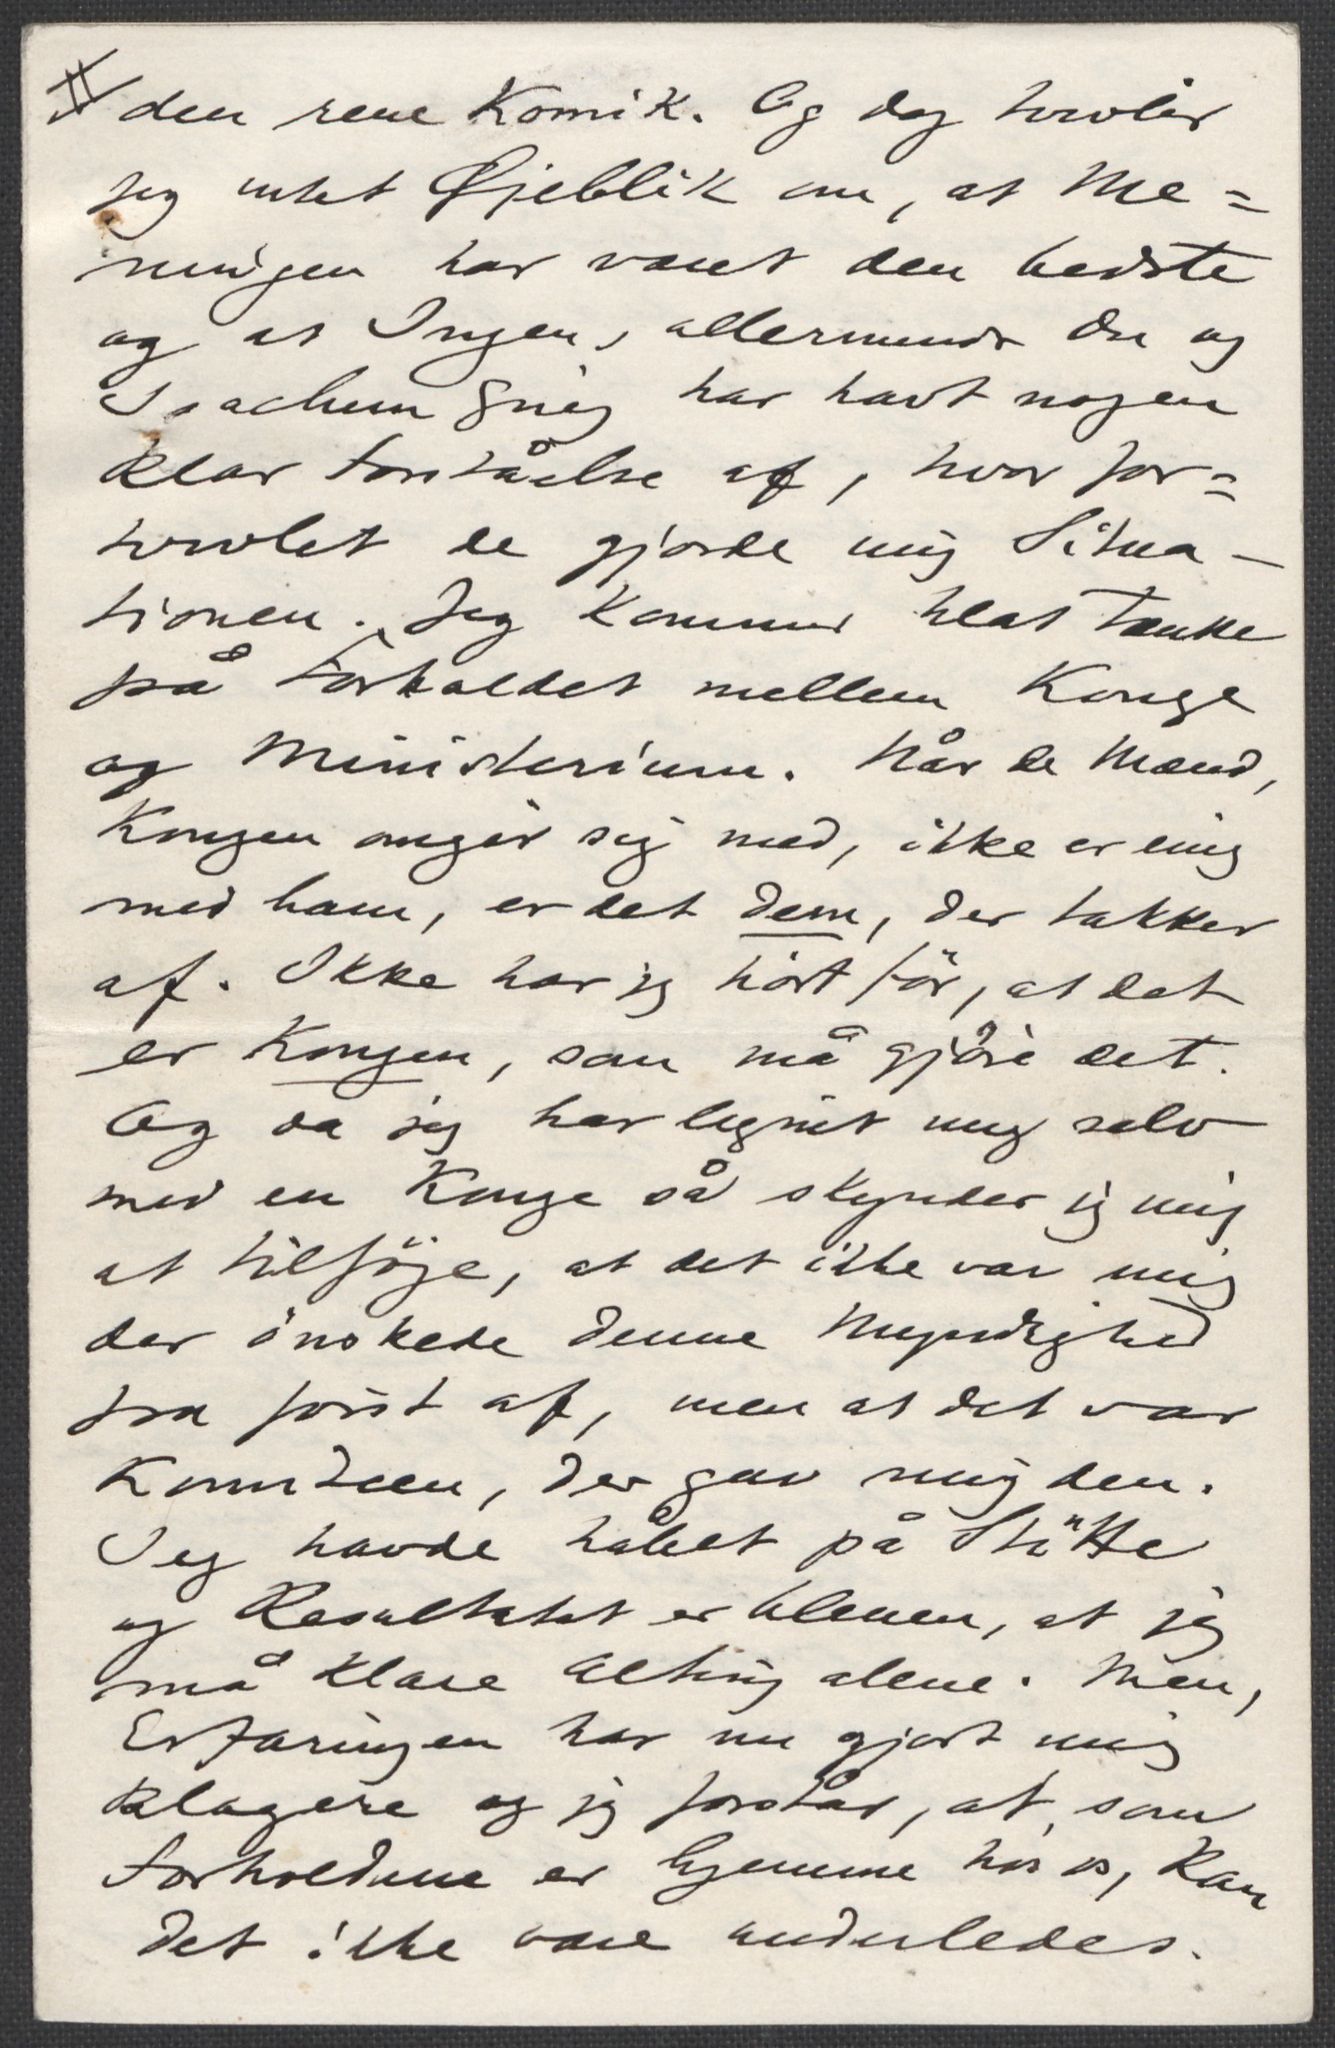 II
den rene Komik. Og dog tvivler
jeg intet Øjeblik om, at Me=
ningen har været den bedste
og at Ingen, allermindst Du og
Joachim Grieg har havt nogen
klar Forståelse af, hvor for=
tvivlet de gjorde mig Situa-
tionen. Jeg kommer blot tænke
på Forholdet mellem Konge
og Ministerium. Når de Mænd,
Kongen omgir sig med, ikke er enig
med ham, er det dem, der takker
af. Ikke har jeg hört för, at det
er Kongen, som må gjöre det.
Og da jeg har lignet mig selv
med en Konge så skynder jeg mig
at tilföje, at det ikke var mig
der önskede denne Myndighed
fra först af, men at det var
Komiteen, der gav mig den.
Jeg havde håbet på Stötte
og Resultatet er bleven, at jeg
må klare Alting alene. Men,
Erfaringen har nu gjort mig
klogere og jeg forstår, at, som
Forholdene er hjemme hos os, kan
det ikke være anderledes.